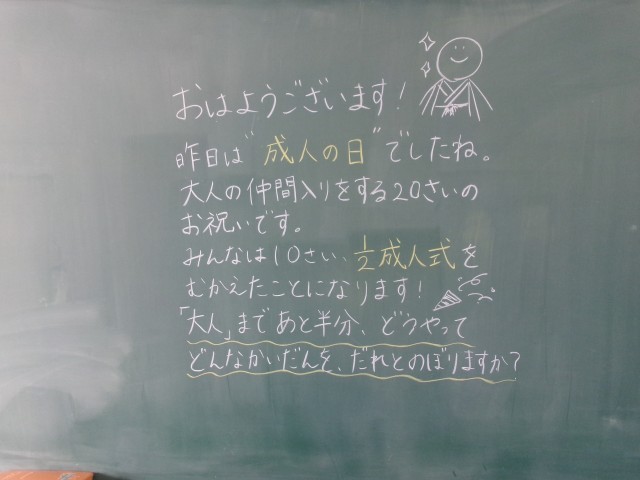 おはようございます！
昨日は"成人の日"でしたね。
大人の仲間入りをする20さいの
お祝いです。
みんなは10さい、1/2成人式を
むかえたことになります！
「大人」まであと半分、どうやって
どんなかいだんを、だれとのぼりますか？